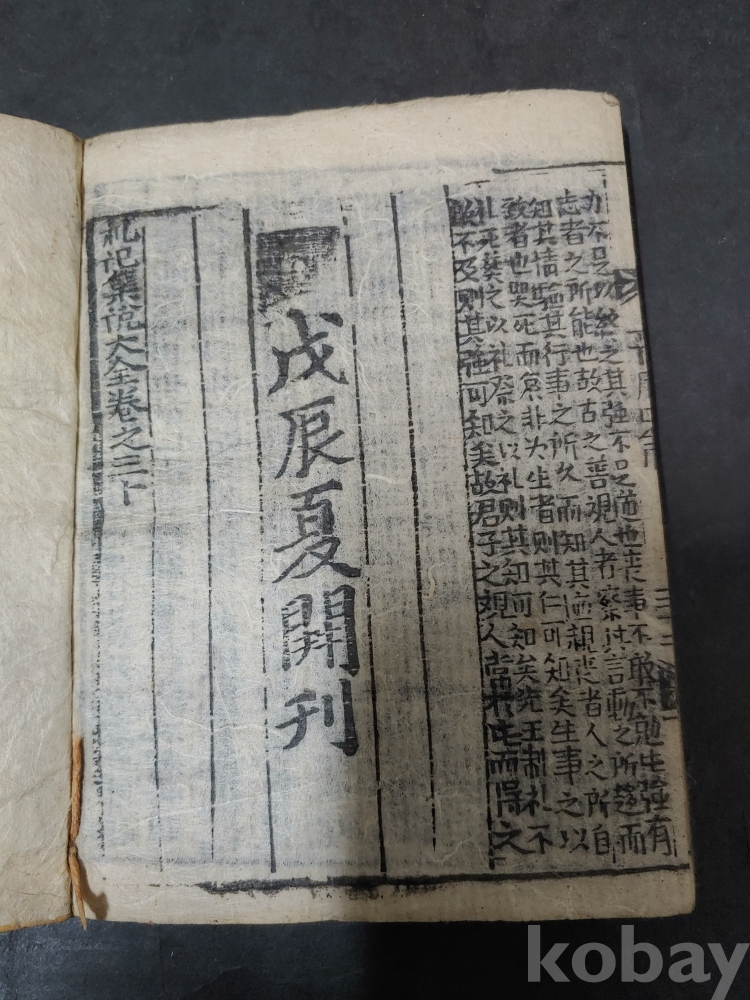 力不足以終之其強不足道也喪事不敢不勉生強有
志者之所能也故古之善視人者察其言動之所趨而
知其情驗其行事之所久而知其誠親喪者人之所自
致者也哭死而哀非为生者則其仁可知矣生事之以
礼死葬之以礼祭之以礼則其知可知矣先王制礼不
敢不及則其強可知矣故君子之观人常於此而得之
戊辰夏開刊
礼記集說大全卷之三下
kobay